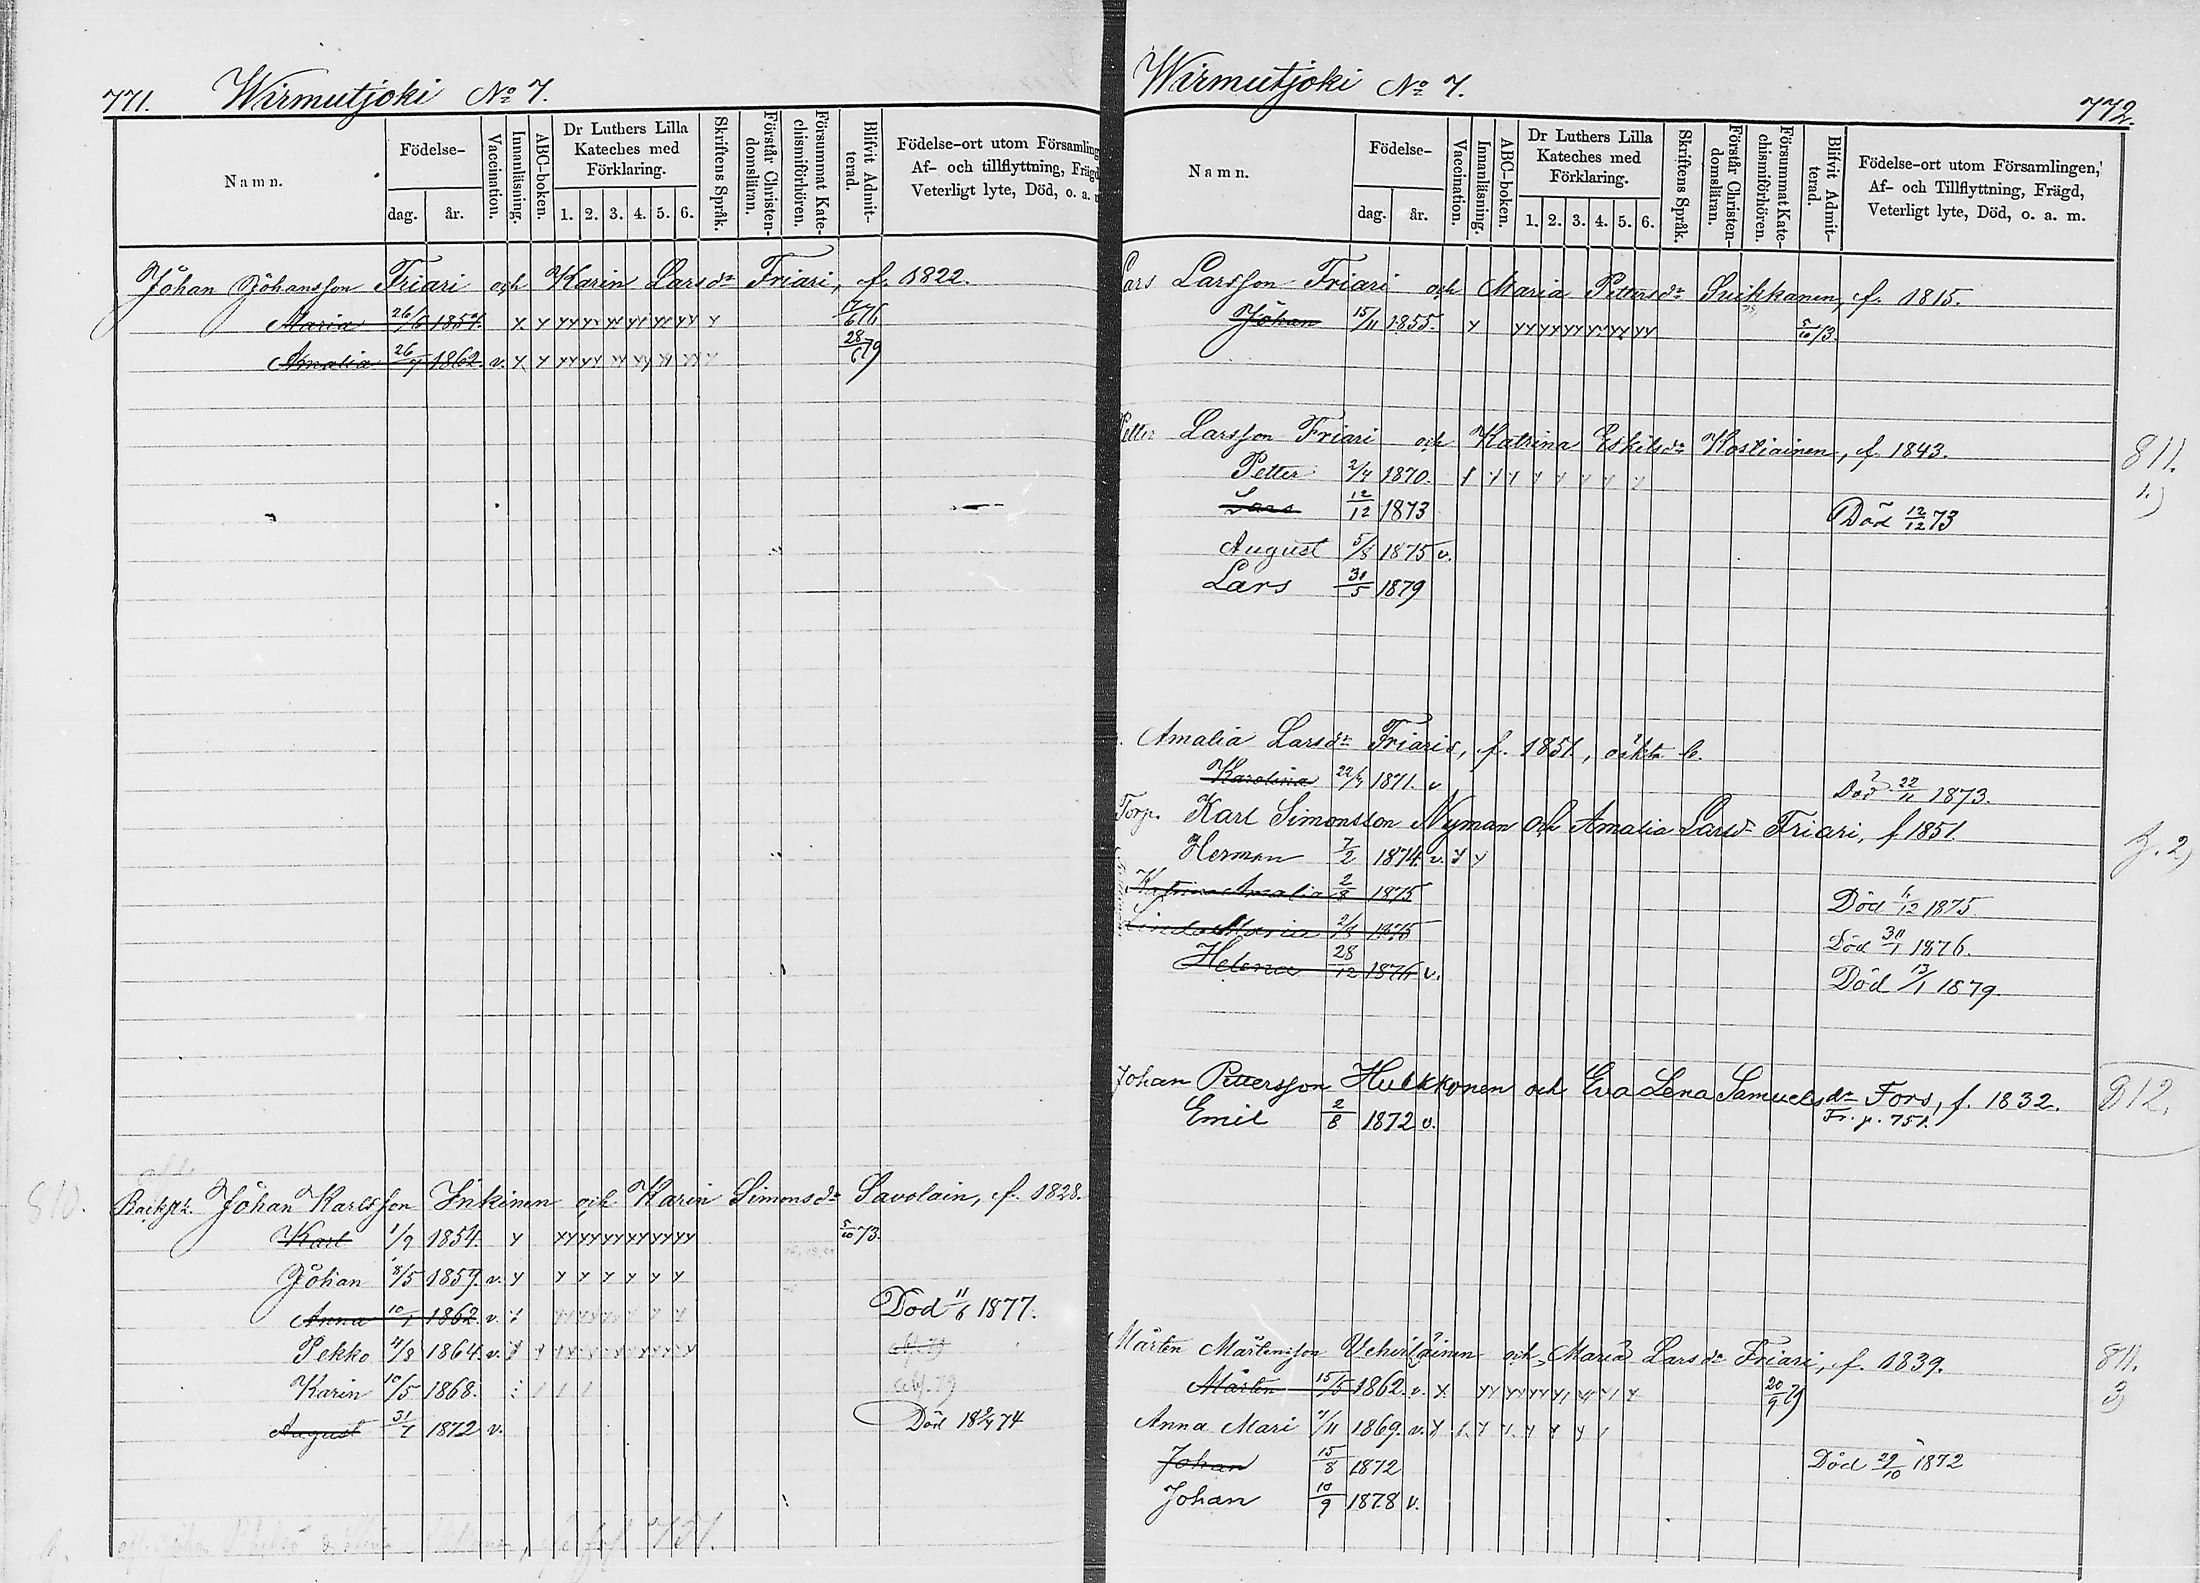 771. Wirmutjoki No 7.
Namn.
Födelse-
dag. år.
Vaccination.
Innanläsning.
ABC-boken.
Dr Luthers Lilla
Kateches med
Förklaring.
1. 2. 3. 4. 5. 6.
Skriftens Språk.
Förstår Christen-
domsläran.
Försummat Kate-
chismiförhören.
Blifvit Admit-
terad.
Födelse-ort utom Församling
Af- och tillflyttning, Frägd
Veterligt lyte, Död, o. a. m
Johan Johansson Friari och Karin Larsdr Friari, f. 1822.
Maria 26/6 1857. 7/6 76
Amalia 26/7 1862. v. 28/6 79
810. Backst. Johan Karlsson Inkinen och Karin Simonsdr Savolain, f. 1828.
Karl 1/9 1854. 5/10 73.
Johan 8/5 1859. v.
Anna 10/1 1862 v. Död 11/6 1877.
Pekko 4/8 1864. v.
Karin 10/5 1868.
August 31/7 1872 v. Död 18 9/4 74
Wirmutjoki No 7. 772.
Namn.
Födelse-
dag. år.
Vaccination.
Innanläsning.
ABC-boken.
Dr Luthers Lilla
Kateches med
Förklaring.
1. 2. 3. 4. 5. 6.
Skriftens Språk.
Förstår Christen-
domsläran.
Försummat Kate-
chismiförhören.
Blifvit Admit-
terad.
Födelse-ort utom Församlingen,
Af- och Tillflyttning, Frägd,
Veterligt lyte, Död, o. a. m.
Lars Larsson Friari och Maria Pettersdr Suikkanen, f. 1815.
Johan 15/11 1855. 5/10 73.
Petter Larsson Friari och Katrina Eskilsdr Kostiainen, f. 1843. 811.
Petter 2/4 1870. 1.)
Lars 12/12 1873 Död 12/12 73
August 5/8 1875 v.
Lars 30/5 1879
Amalia Larsdr Friari, f. 1851, oäkta b.
Karolina 22/4 1871. v Död 22/11 1873.
Torp. Karl Simonsson Nyman och Amalia Larsdr Friari, f 1851.
Herman 7/2 1874. v. 2)
Katrina Amalia 2/8 1875 Död 1/12 1875.
Linda Maria 2/8 1875 Död 30/1 1876.
Helena 28/12 1876 v. Död 13/1 1879.
Johan Pettersson Hulkkonen och Eva Lena Samuelsdr Fors, f. 1832. 812.
Emil 2/8 1872 v. Fr. p. 751.
Mårten Mårtensson Vehviläinen och Maria Larsdr Friari, f. 1839. 811.
Mårten 15/5 1862. v. 20/9 79 3)
Anna Mari 7/11 1869. v.
Johan 15/8 1872 Död 29/10 1872
Johan 10/9 1878 v.